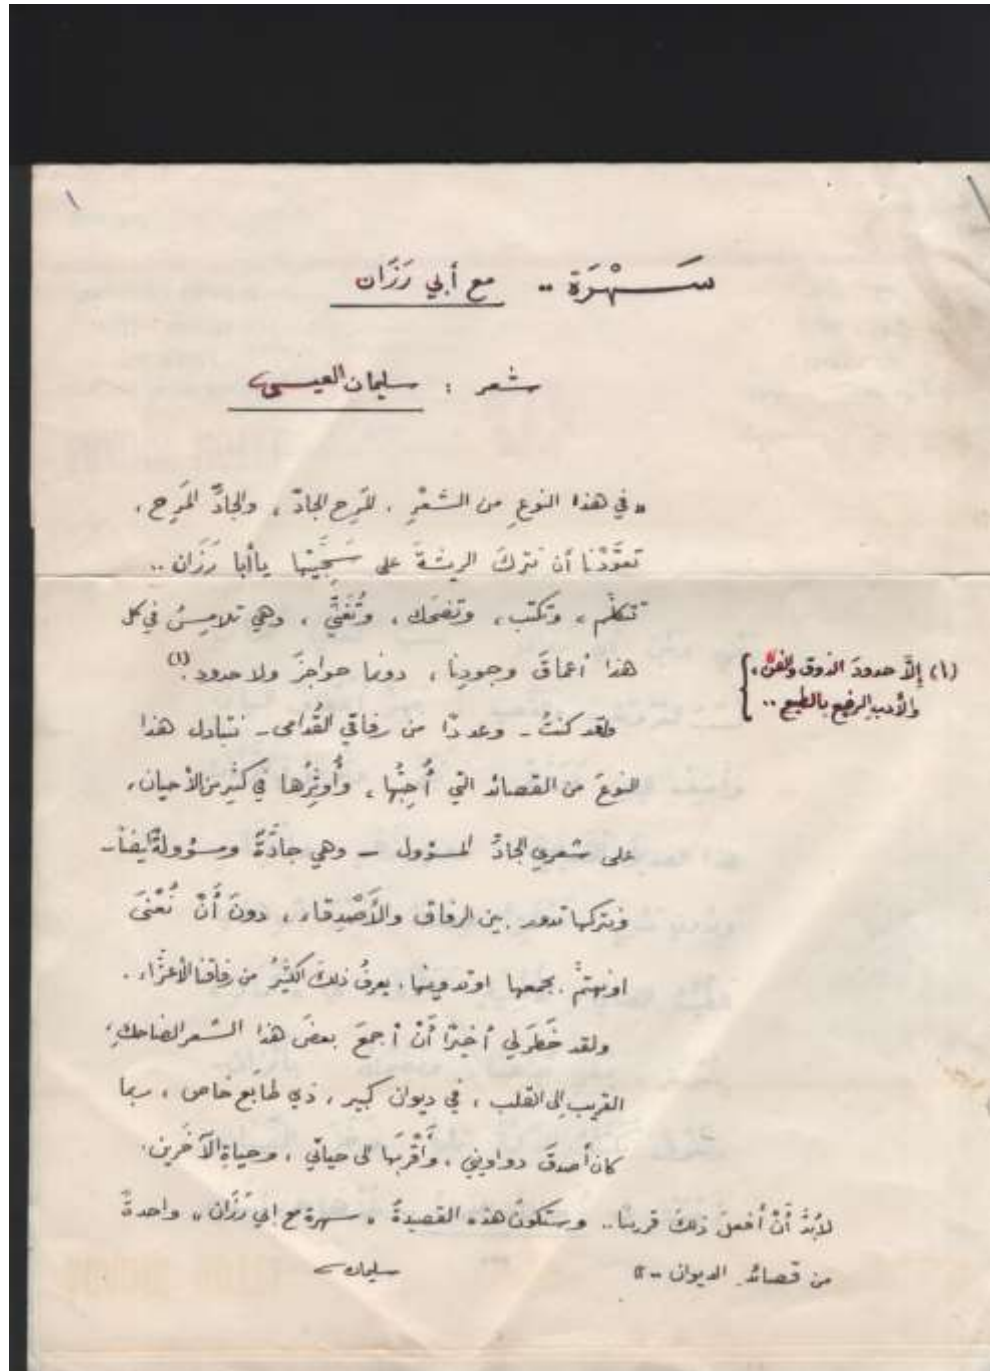 ١
سَــهْرَة .. مع أبي رَزَان
شعر : سليمان العيسى
« في هذا النوعِ من الشعْرِ . المَرِحِ الجادّ ، والجادِّ المَرِح ،
تعوَّدْنا أن نتركَ الريشةَ على سَجِيَّتِها يا أبا رَزَان ..
تتكلّم ، وتكتب ، وتضحك ، وتُغنّي ، وهي تلامِسُ في كل
هذا أعماقَ وجودِنا ، دونما حواجزَ ولا حدود .(١)
(١) إلاَّ حدودَ الذوق والفنّ ،
والأدب الرفيع بالطبع ..
ولقد كنتُ ـ وعددًا من رفاقي القُدامى ـ نتبادل هذا
النوعَ من القصائد التي أُحِبُّها ، وأُوثِرُها في كثيرٍ من الأحيان ،
على شعري الجادّ المسؤول ـ وهي جادَّةٌ ومسؤولةٌ أيضاً ـ
ونتركها تدور بين الرفاق والأَصْدِقاء ، دونَ أَنْ نُعْنَى
او نهتمَّ بجمعها او تدوينها ، يعرفُ ذلك الكثيرُ من رفاقنا الأعزّاء .
ولقد خَطَرَ لي أخيرًا أَنْ أجمعَ بعضَ هذا الشعر الضاحكِ ،
القريبِ إلى القلب ، في ديوان كبير ، ذي طابَع خاص ، ربما
كان أصدقَ دواويني ، وأَقْرَبَها إلى حياتي ، وحياةِ الآخَرين .
لابُدَّ أَنْ أفعلَ ذلك قريبًا .. وستكونُ هذه القصيدةُ « سهرة مع ابي رَزَان » واحدةً
من قصائد الديوان .. »
سليمان